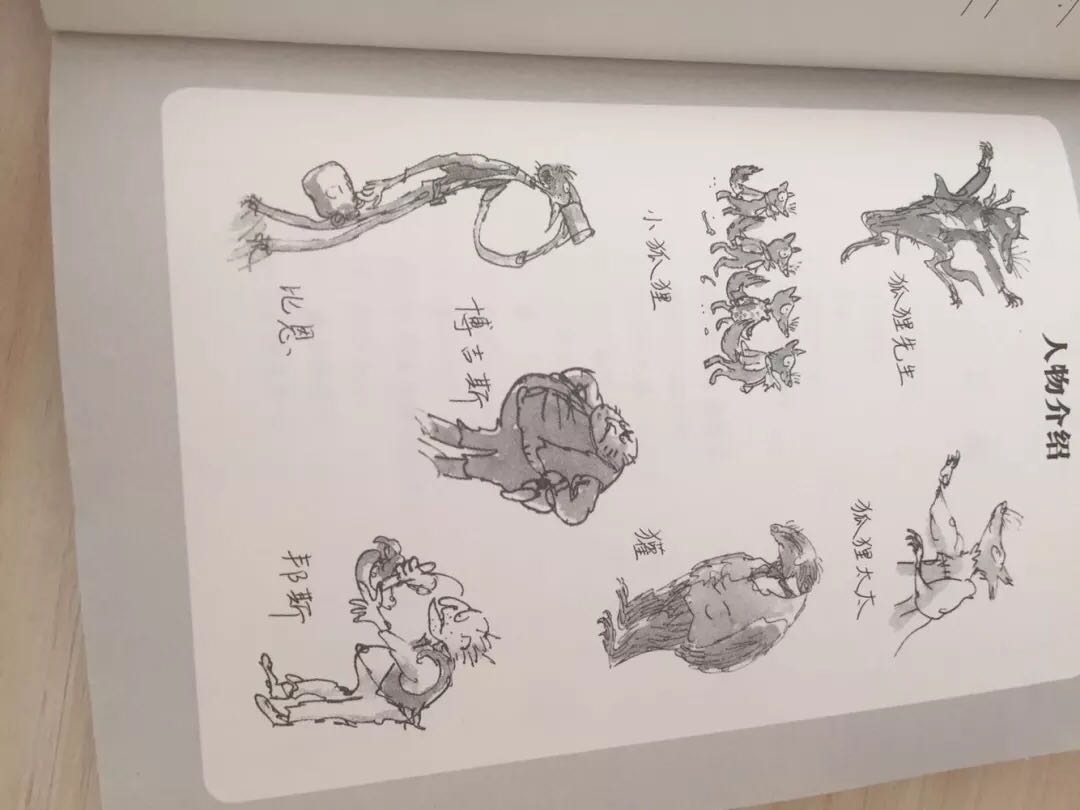 人物介绍
狐狸先生
狐狸太太
小狐狸
獾
博吉斯
比恩
邦斯